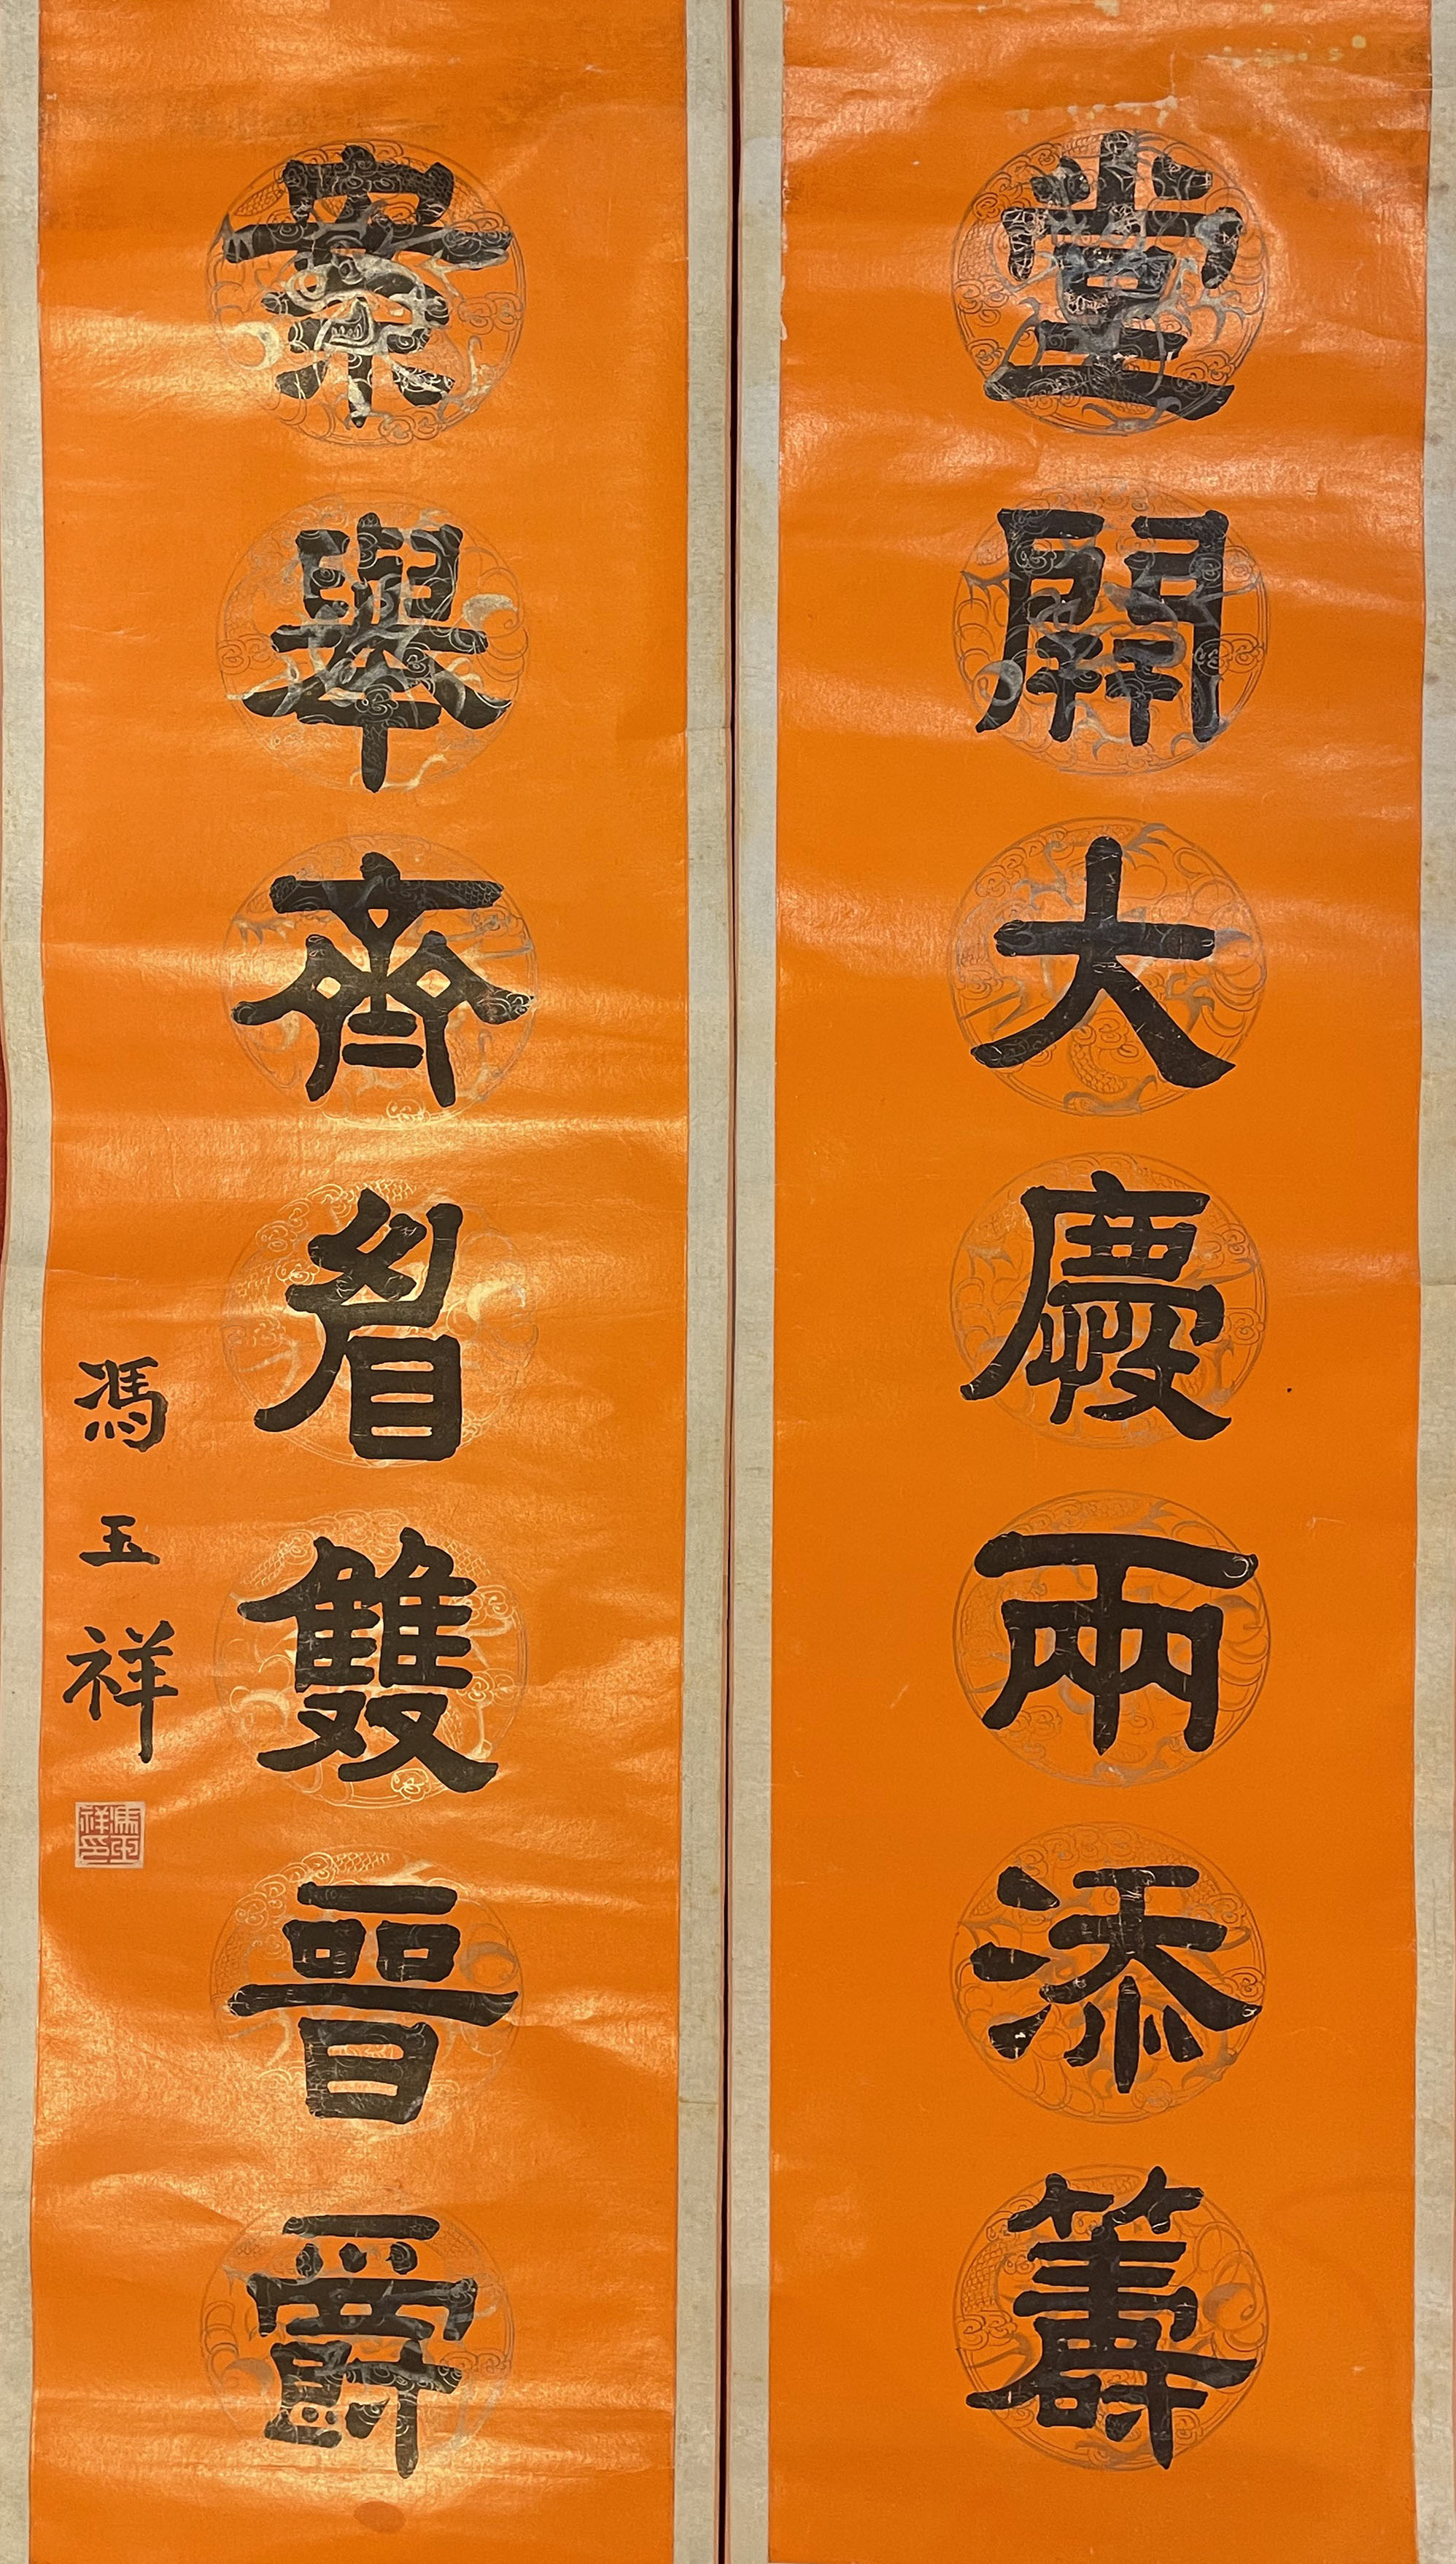 堂開大慶兩添籌
案舉齊眉雙晉爵
馮玉祥
馮玉祥印